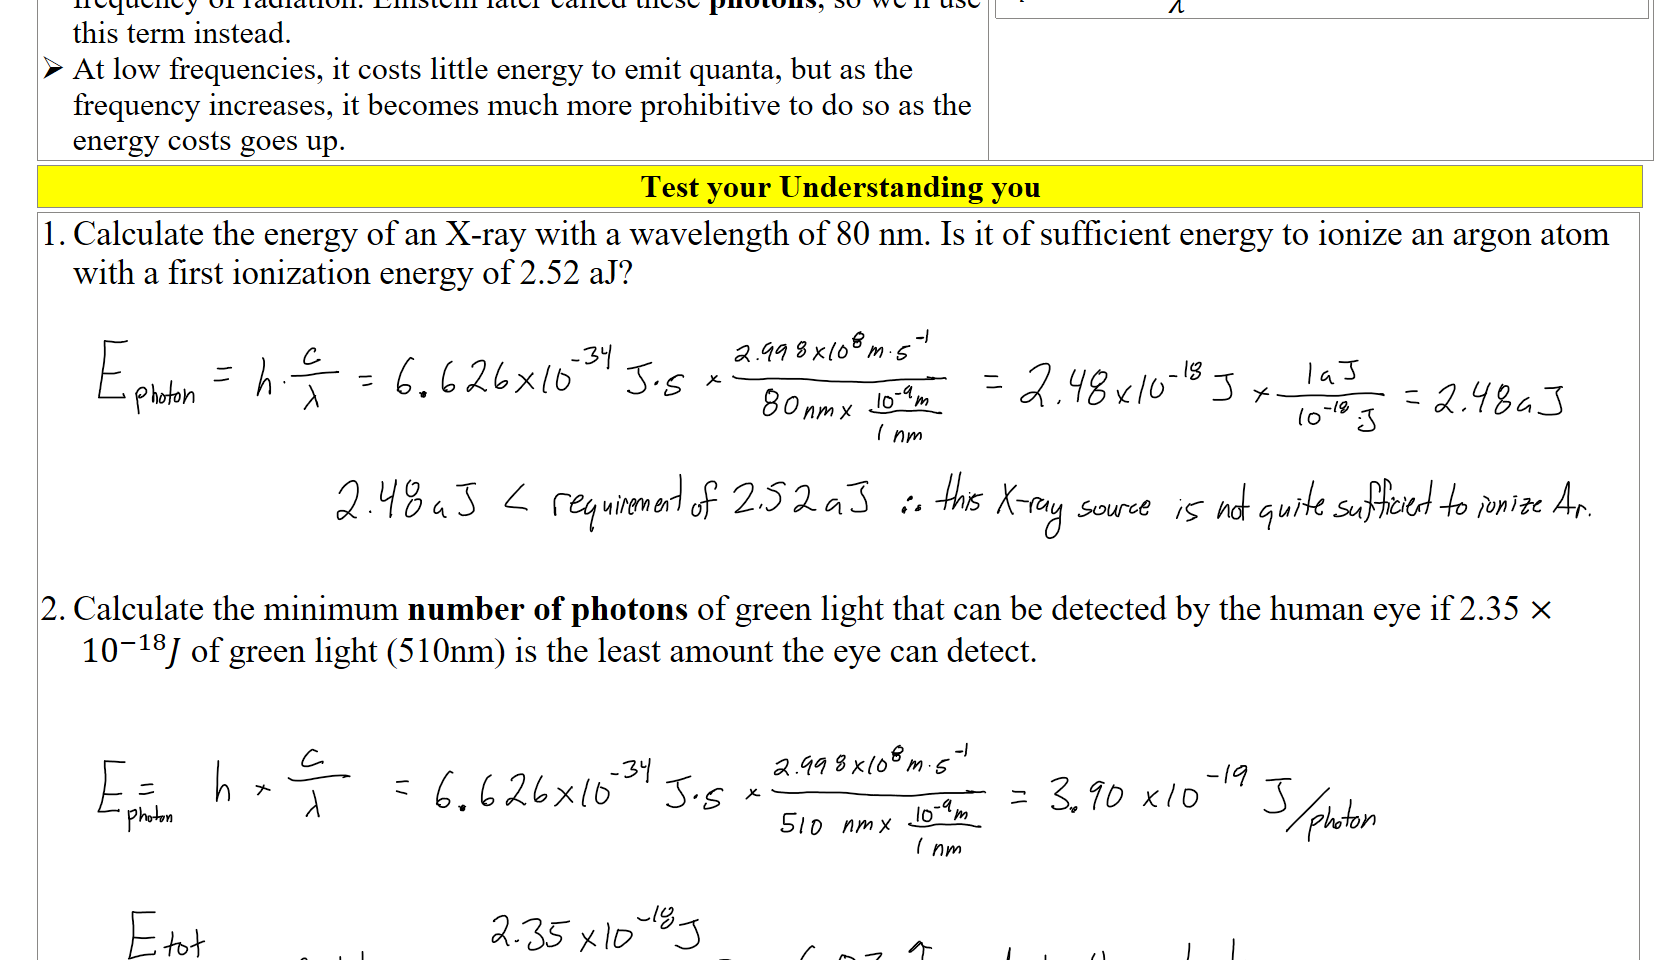 this term instead.
➤ At low frequencies, it costs little energy to emit quanta, but as the
frequency increases, it becomes much more prohibitive to do so as the
energy costs goes up.
λ
Test your Understanding you
1. Calculate the energy of an X-ray with a wavelength of 80 nm. Is it of sufficient energy to ionize an argon atom
with a first ionization energy of 2.52 aJ?
E photon = h · c/λ = 6.626×10^-34 J·s × 2.998×10^8 m·s^-1 / (80 nm × 10^-9 m / 1 nm) = 2.48×10^-18 J × 1aJ / 10^-18 J = 2.48aJ
2.48aJ < requirement of 2.52aJ ∴ this X-ray source is not quite sufficient to ionize Ar.
2. Calculate the minimum number of photons of green light that can be detected by the human eye if 2.35 ×
10^−18 J of green light (510nm) is the least amount the eye can detect.
E photon = h × c/λ = 6.626×10^-34 J·s × 2.998×10^8 m·s^-1 / (510 nm × 10^-9 m / 1 nm) = 3.90 ×10^-19 J/photon
E tot 2.35 ×10^-18 J